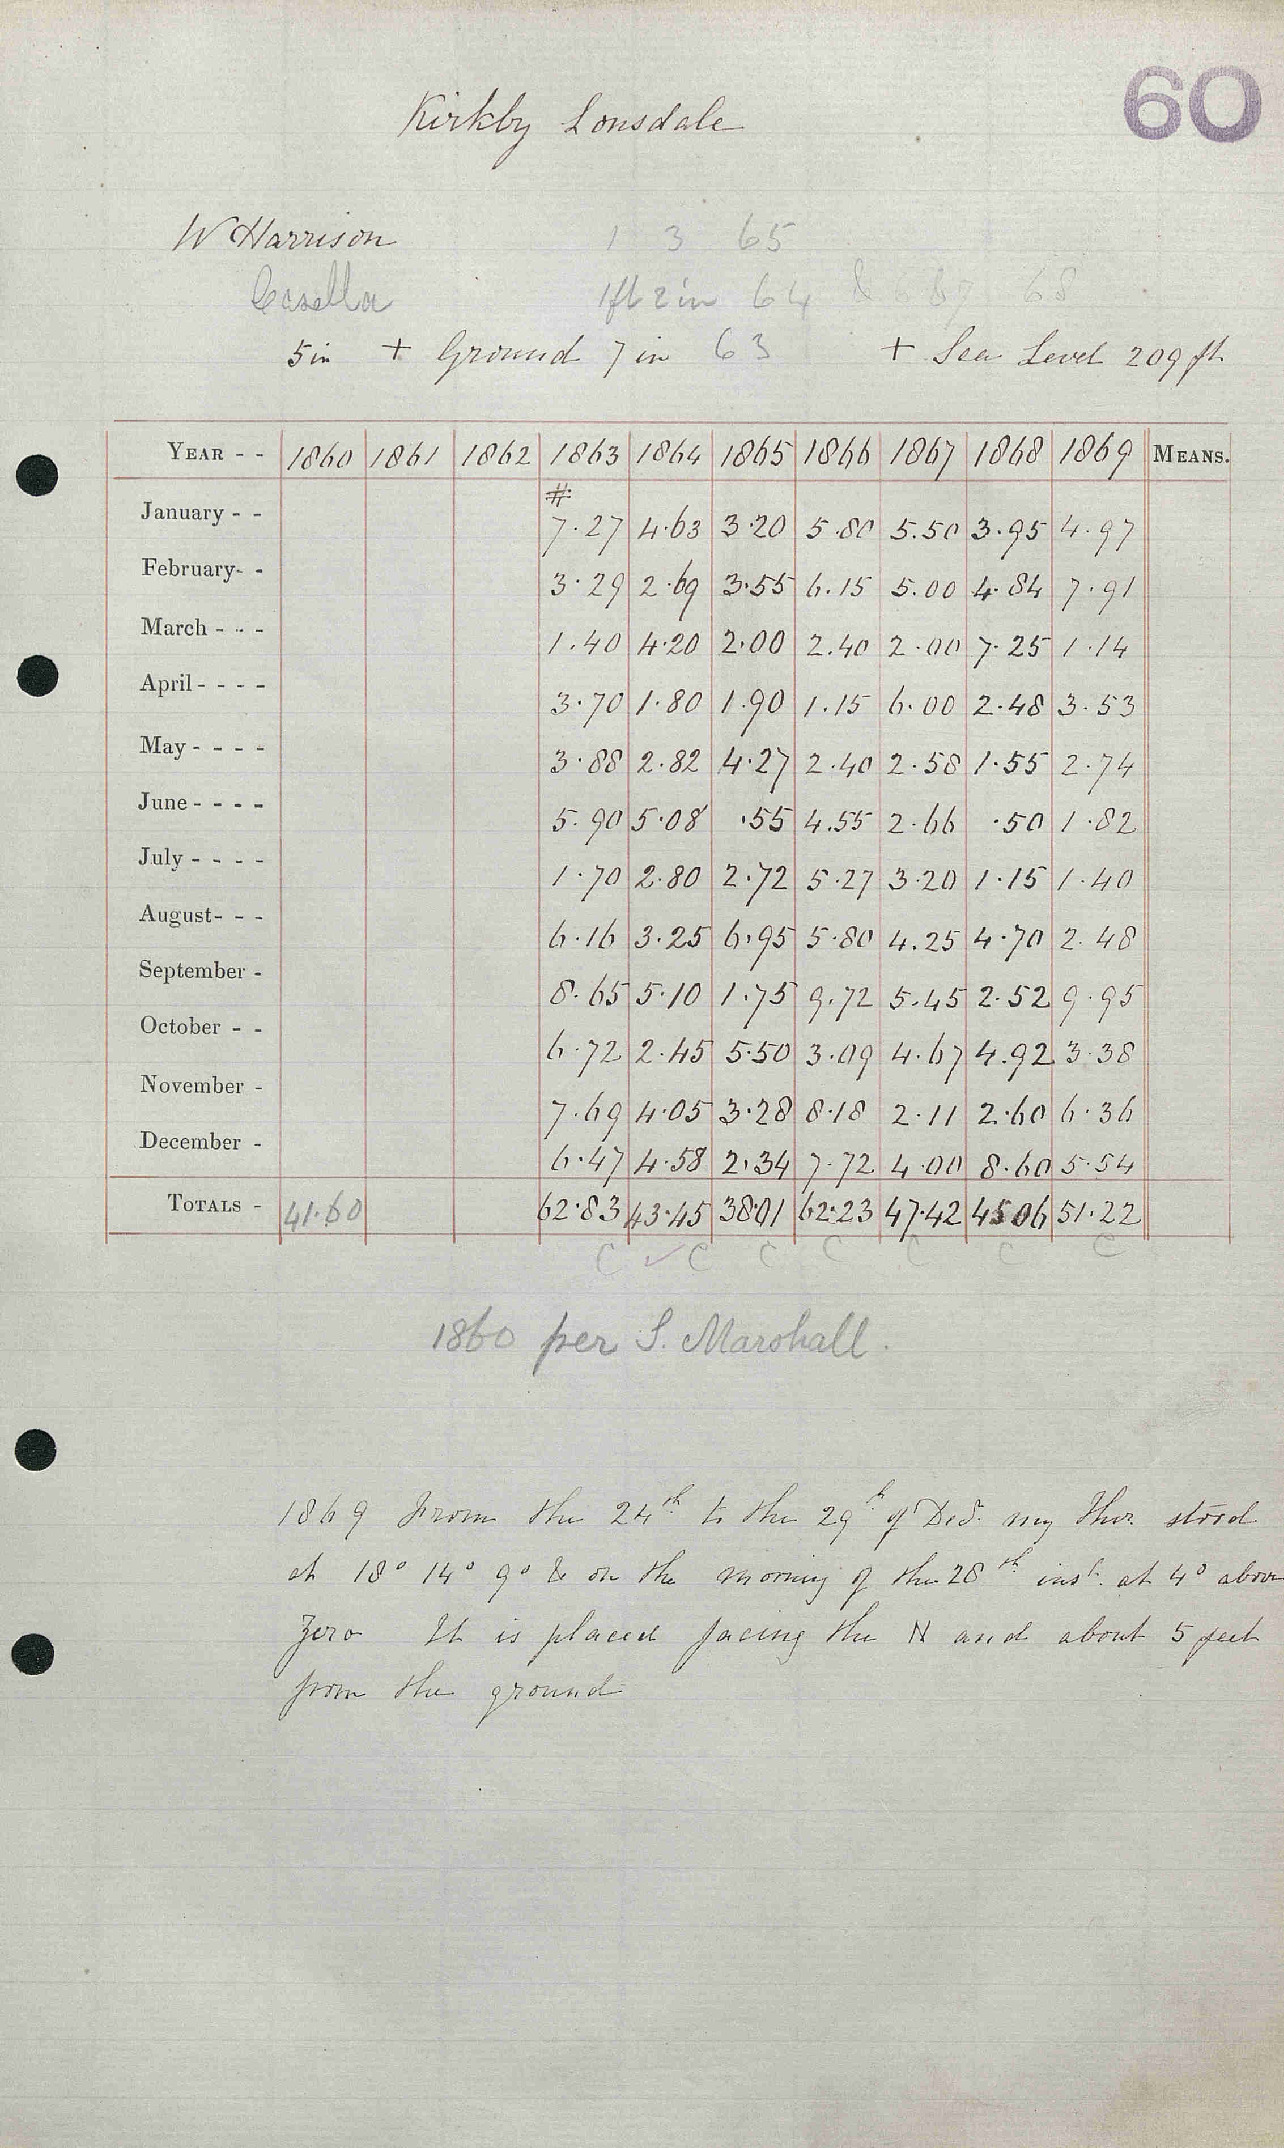 60
Kirkby Lonsdale
W Harrison 1 3 65
Casella 1ft 2in 64 & 67 68
5in + Ground 7 in 63 + Sea Level 209 ft
YEAR - - 1860 1861 1862 1863 1864 1865 1866 1867 1868 1869 MEANS.
#
January - - 7.27 4.63 3.20 5.80 5.50 3.95 4.97
February- - 3.29 2.69 3.55 6.15 5.00 4.84 7.91
March - - - 1.40 4.20 2.00 2.40 2.00 7.25 1.14
April - - - - 3.70 1.80 1.90 1.15 6.00 2.48 3.53
May - - - - 3.88 2.82 4.27 2.40 2.58 1.55 2.74
June - - - - 5.90 5.08 .55 4.55 2.66 .50 1.82
July - - - - 1.70 2.80 2.72 5.27 3.20 1.15 1.40
August- - - 6.16 3.25 6.95 5.80 4.25 4.70 2.48
September - 8.65 5.10 1.75 9.72 5.45 2.52 9.95
October - - 6.72 2.45 5.50 3.09 4.67 4.92 3.38
November - 7.69 4.05 3.28 8.18 2.11 2.60 6.36
December - 6.47 4.58 2.34 7.72 4.00 8.60 5.54
TOTALS - 41.60 62.83 43.45 38.01 62.23 47.42 45.06 51.22
C ✓ C C C C C C
1860 per S. Marshall.
1869 From the 24th to the 29th of Decr. my Ther. stood
at 18° 14° 9° & on the morning of the 28th inst. at 4° above
Zero It is placed facing the N and about 5 feet
from the ground